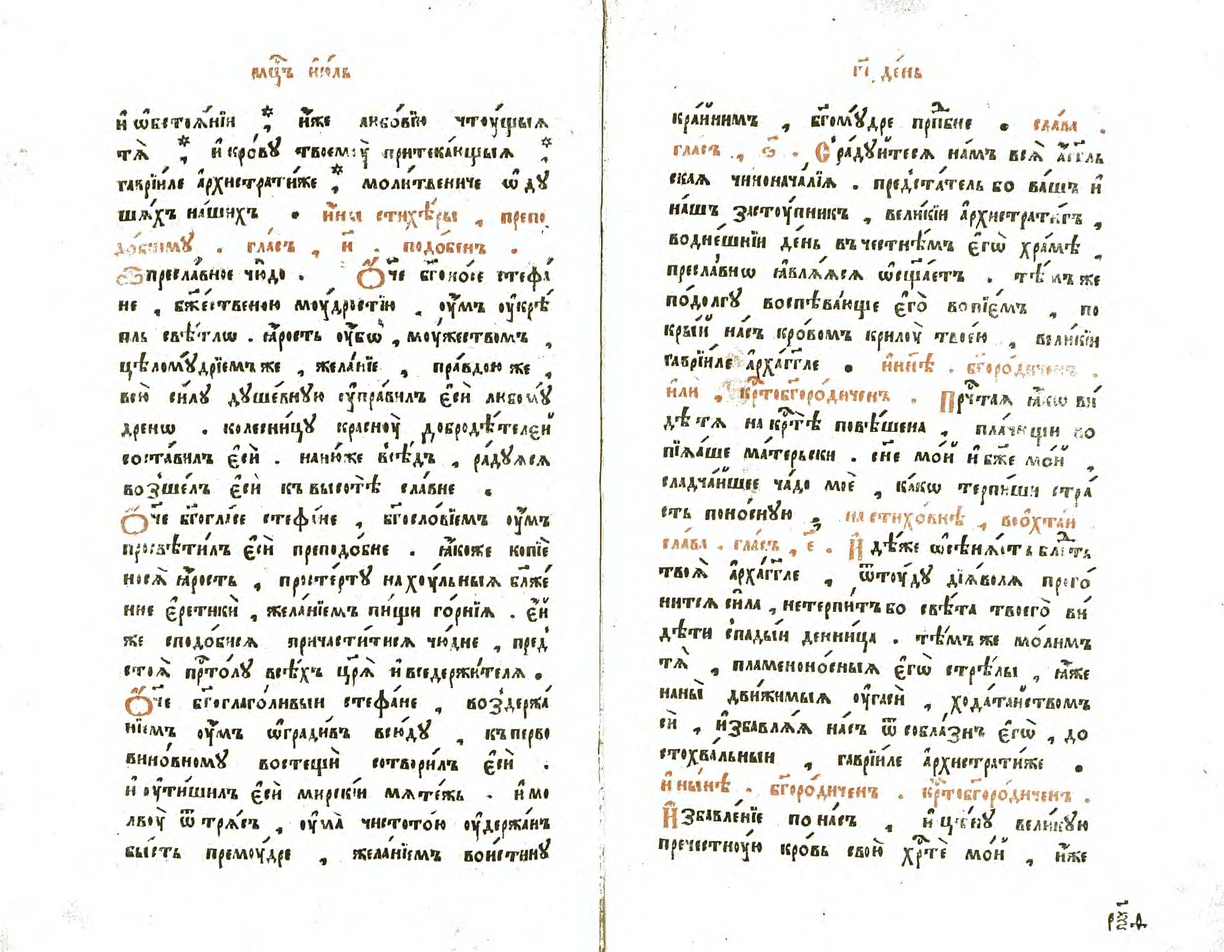 мц҃ъ ию́ль
и҆ ѡ҆бстоѧ́нїи * и҆́же любо́вїю чтоу́щыѧ
тѧ̀ * и҆ кро́вꙋ твоемꙋ̀ притека́ющыѧ *
гаврїи́ле а҆рхистрати́же * моли́твениче ѡ҆ дꙋ
ша́хъ на́шихъ . и҆́ны стихѣ́ры , препо
до́бномꙋ . гла́съ , и҃ . подо́бенъ .
Ѽ пресла́вное чю́до . Ѻ҆́че бг҃оно́се стефа́
не , бж҃е́ственою моу́дростїю , оу҆́мъ оу҆крѣ
пль свѣ́тлѡ . ꙗ҆́рость оу҆́бѡ , моу́жествомъ ,
цѣломꙋ́дрїемъ же , жела́нїе , пра́вдою же ,
всю̀ си́лꙋ дꙋше́внꙋю оу҆пра́вилъ є҆сѝ любомꙋ́
дренѡ . колесни́цꙋ красноу̀ добродѣ́телей
соста́вилъ є҆сѝ . наню́же всѣ́дъ , ра́дꙋѧсѧ
возше́лъ є҆сѝ къ высотѣ̀ сла́вне .
Ѻ҆́че бг҃огла́се стефа́не , бг҃осло́вїемъ оу҆́мъ
просвѣти́лъ є҆сѝ преподо́бне . ꙗ҆́коже копїѐ
носѧ̀ ꙗ҆́рость , просте́ртꙋ на хоу́льныѧ бл҃же́
нне є҆ретикѝ , жела́нїемъ пи́щи го́рнїѧ . є҆́й
же сподо́бисѧ причасти́тисѧ чю́дне , пред̾
стоѧ̀ прⷭ҇то́лꙋ всѣ́хъ цр҃ѧ̀ и҆ вседержи́телѧ .
Ѻ҆́че бг҃оглаго́ливыи стефа́не , воздержа́
нїемъ оу҆́мъ ѡ҆гради́въ всю́дꙋ , къ перво
вино́вномꙋ востещѝ сотвори́лъ є҆сѝ .
и҆ оу҆тиши́лъ є҆сѝ мирскі́и мѧте́жь . и҆ мо
лвоу̀ ѿ трѧ́съ , оу҆ма̀ чистото́ю оу҆держа́нъ
бы́сть премоу́дре , жела́нїемъ вои́стинꙋ
г҃і де́нь
кра́йнимъ , бг҃омꙋ́дре прⷣпбне . сла́ва .
гла́съ , ѕ҃ . Сра́дꙋйтесѧ на́мъ всѧ̀ а҆́гг҃ль
скаѧ чинонача́лїѧ . предста́тель бо ва́шъ и҆
на́шъ засто́упникъ , вели́кїи а҆рхистрати́гъ ,
во дне́шнїи де́нь въ честнѣ́мъ є҆гѡ̀ хра́мѣ ,
пресла́внѡ ꙗ҆влѧ́ѧсѧ ѡ҆сщ҃а́етъ . тѣ́мъже
по́долгꙋ воспѣва́юще є҆го̀ вопїе́мъ , по
кры́й на́съ кро́вомъ крилоу̀ твоє́ю , вели́кїи
гаврїи́ле а҆рха́гг҃ле . ны́нѣ . бг҃оро́диченъ .
и҆лѝ , крⷭ҇тобг҃оро́диченъ . Прⷱ҇таѧ ꙗ҆́кѡ ви
дѣ́ тѧ на крⷭ҇тѣ̀ повѣ́шена , пла́чющи во
пїѧ́ше ма́терьски . сн҃е мо́й и҆ бж҃е мо́й ,
сладча́йшее ча́до моѐ , ка́кѡ терпи́ши стра́
сть поно́снꙋю , на стихо́внѣ , во ѻ҆хта́и
сла́ва . гла́съ , є҃ . И҆дѣ́же ѡ҆сѣнѧ́етъ бл҃гть
твоѧ̀ а҆рха́гг҃ле , ѿтоу́дꙋ дїѧ́волѧ прого́
нитсѧ си́ла , не терпи́тъ бо свѣ́та твоего̀ ви́
дѣти спады́и денни́ца . тѣ́мъ же мо́лимъ
тѧ̀ , пламеноно́сныѧ є҆гѡ̀ стрѣ́лы , ꙗ҆́же
на ны̀ дви́жимыѧ оу҆гасѝ , хода́тайствомъ
сѝ , и҆збавлѧ́ѧ на́съ ѿ собла́знъ є҆гѡ̀ , до
стохва́льныи , гаврїи́ле а҆рхистрати́же .
и҆ ны́нѣ . бг҃оро́диченъ . крⷭ҇тобг҃оро́диченъ .
И҆збавле́нїе по на́съ , и҆ цѣ́нꙋ вели́кꙋю
пречестноу́ю кро́вь свою̀ хрⷭ҇тѐ мо́й , и҆́же